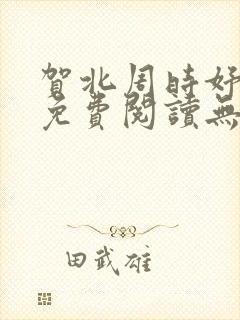 賀北周時好
免費閱讀無
田武雄